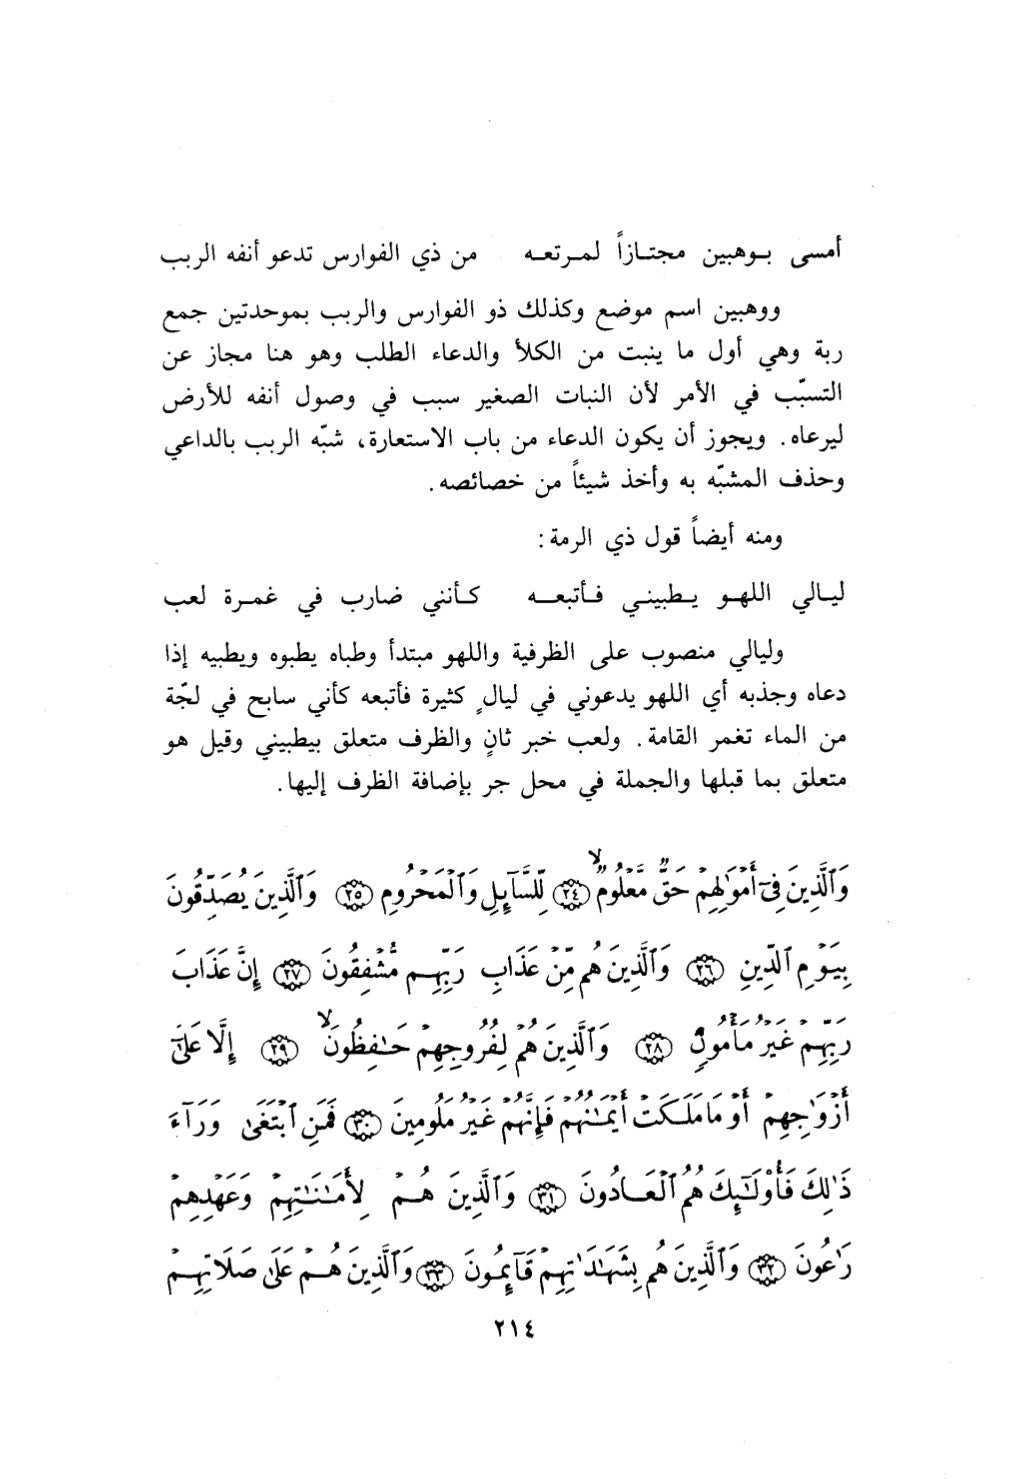 أمسى بـوهبين مجتـازاً لمـرتعـه من ذي الفوارس تدعو أنفه الربب
ووهبين اسم موضع وكذلك ذو الفوارس والربب بموحدتين جمع
ربة وهي أول ما ينبت من الكلأ والدعاء الطلب وهو هنا مجاز عن
التسبّب في الأمر لأن النبات الصغير سبب في وصول أنفه للأرض
ليرعاه. ويجوز أن يكون الدعاء من باب الاستعارة، شبّه الربب بالداعي
وحذف المشبّه به وأخذ شيئاً من خصائصه.
ومنه أيضاً قول ذي الرمة:
ليـالي اللهـو يـطبينـي فـأتبعـــه كـأنني ضارب في غمـرة لعب
وليالي منصوب على الظرفية واللهو مبتدأ وطباه يطبوه ويطبيه إذا
دعاه وجذبه أي اللهو يدعوني في ليالٍ كثيرة فأتبعه كأني سابح في لجّة
من الماء تغمر القامة. ولعب خبر ثانٍ والظرف متعلق بيطبيني وقيل هو
متعلق بما قبلها والجملة في محل جر بإضافة الظرف إليها.
وَٱلَّذِينَ فِىٓ أَمْوَٰلِهِمْ حَقٌّ مَّعْلُومٌ ۙ ﴿٢٤﴾ لِّلسَّآئِلِ وَٱلْمَحْرُومِ ﴿٢٥﴾ وَٱلَّذِينَ يُصَدِّقُونَ
بِيَوْمِ ٱلدِّينِ ﴿٢٦﴾ وَٱلَّذِينَ هُم مِّنْ عَذَابِ رَبِّهِم مُّشْفِقُونَ ﴿٢٧﴾ إِنَّ عَذَابَ
رَبِّهِمْ غَيْرُ مَأْمُونٍ ﴿٢٨﴾ وَٱلَّذِينَ هُمْ لِفُرُوجِهِمْ حَـٰفِظُونَ ۙ ﴿٢٩﴾ إِلَّا عَلَىٰٓ
أَزْوَٰجِهِمْ أَوْ مَا مَلَكَتْ أَيْمَـٰنُهُمْ فَإِنَّهُمْ غَيْرُ مَلُومِينَ ﴿٣٠﴾ فَمَنِ ٱبْتَغَىٰ وَرَآءَ
ذَٰلِكَ فَأُو۟لَـٰٓئِكَ هُمُ ٱلْعَادُونَ ﴿٣١﴾ وَٱلَّذِينَ هُمْ لِأَمَـٰنَـٰتِهِمْ وَعَهْدِهِمْ
رَٰعُونَ ﴿٣٢﴾ وَٱلَّذِينَ هُم بِشَهَـٰدَٰتِهِمْ قَآئِمُونَ ﴿٣٣﴾ وَٱلَّذِينَ هُمْ عَلَىٰ صَلَاتِهِمْ
٢١٤